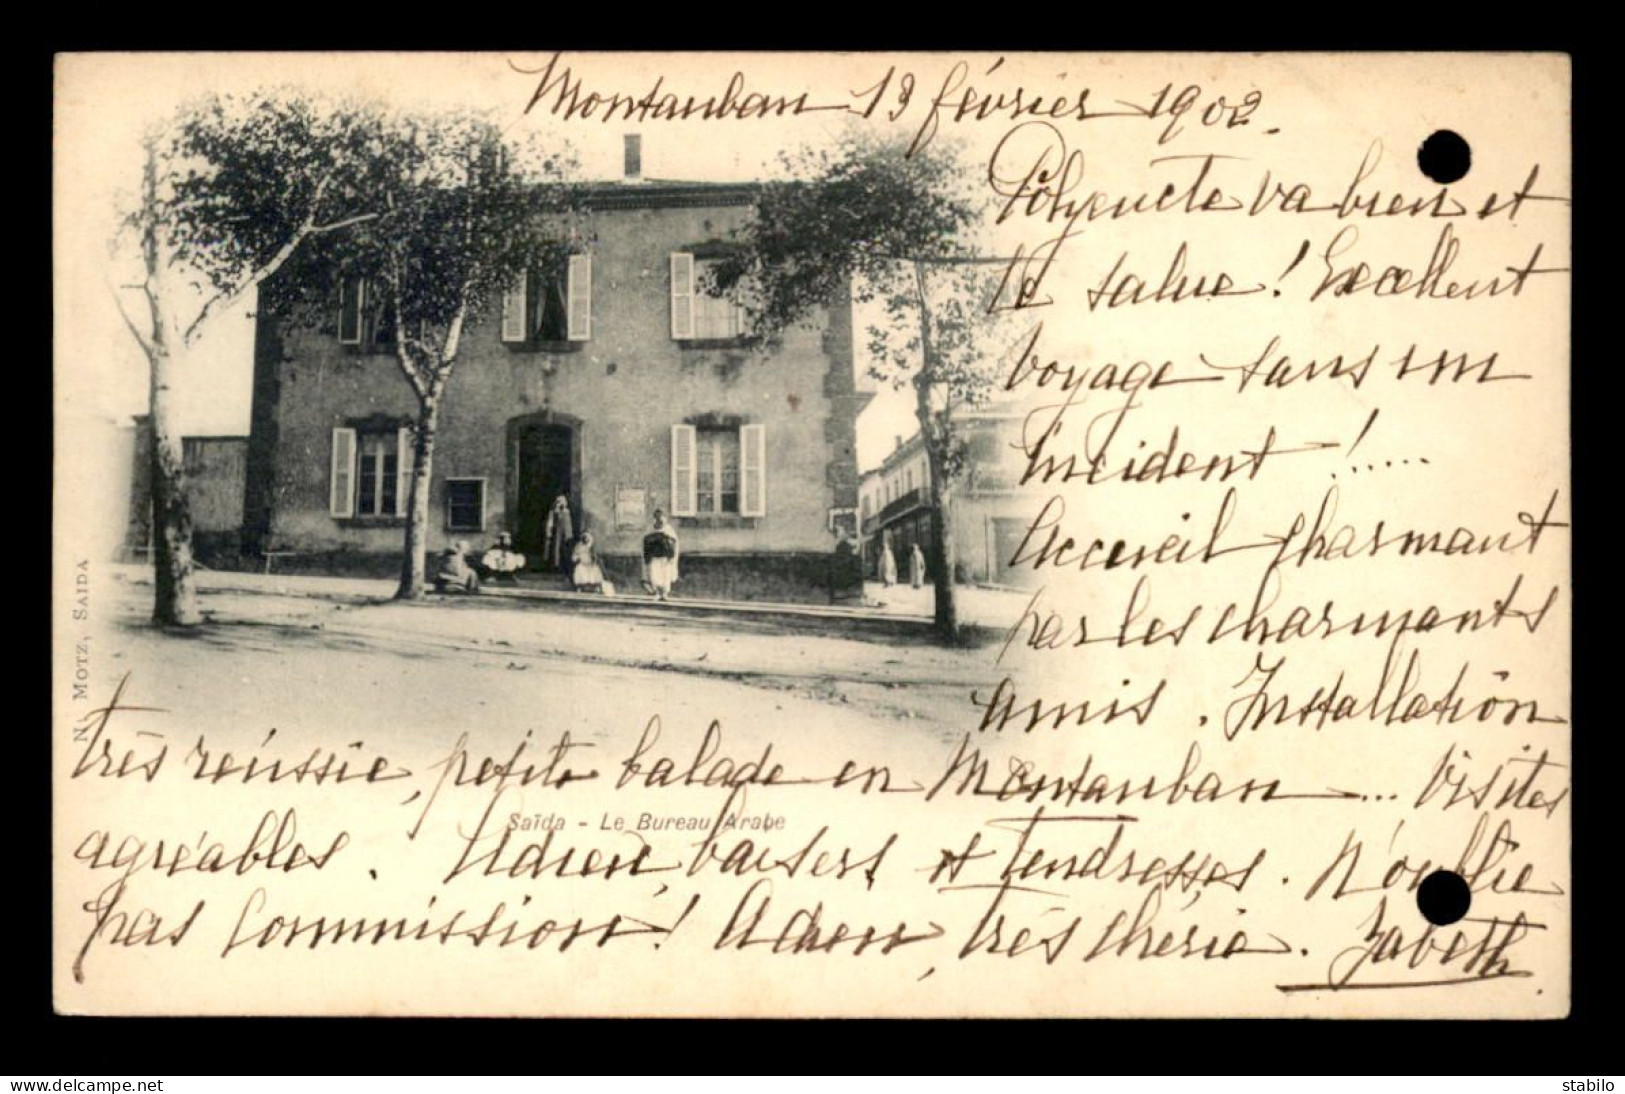 Montauban 13 février 1902.
Polyeucte va bien et
te salue ! Excellent
voyage sans un
incident !......
Accueil charmant
par les charmants
amis. Installation
très réussie, petite balade en Montauban... Visites
agréables. Adieu, baisers et Tendresses. N'oublie
pas commission ! Adieu, très chérie. Zabeth
Saïda - Le Bureau Arabe
N. MOTZ, SAIDA
stabilo
delcampe.net